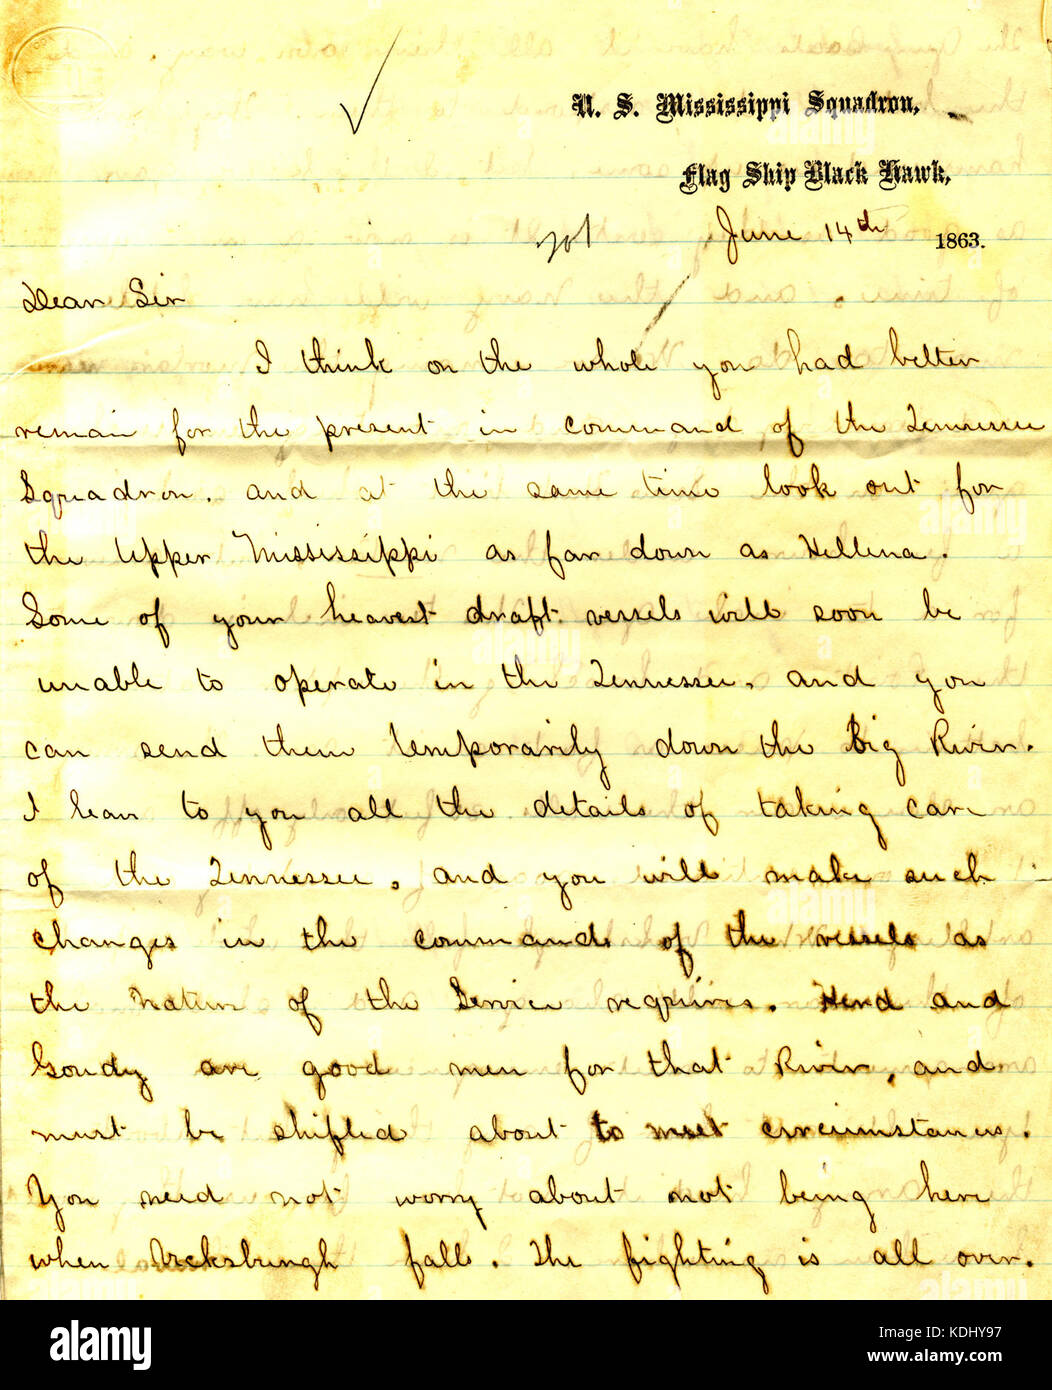 U. S. Mississippi Squadron,
Flag Ship Black Hawk,
June 14th 1863.
Dear Sir
I think on the whole you had better
remain for the present in command of the Tennessee
Squadron, and at the same time look out for
the Upper Mississippi as far down as Hellena.
Some of your heavest draft vessels will soon be
unable to operate in the Tennessee, and you
can send them temporarily down the Big River.
I leave to you all the details of taking care
of the Tennessee, and you will make such
changes in the commands of the vessels as
the Nature of the Service requires. Hurd and
Goudy are good men for that River, and
must be shifted about to meet circumstances.
You need not worry about not being here
when Vicksburgh falls. The fighting is all over.
alamy
Image ID: KDHY97
www.alamy.com